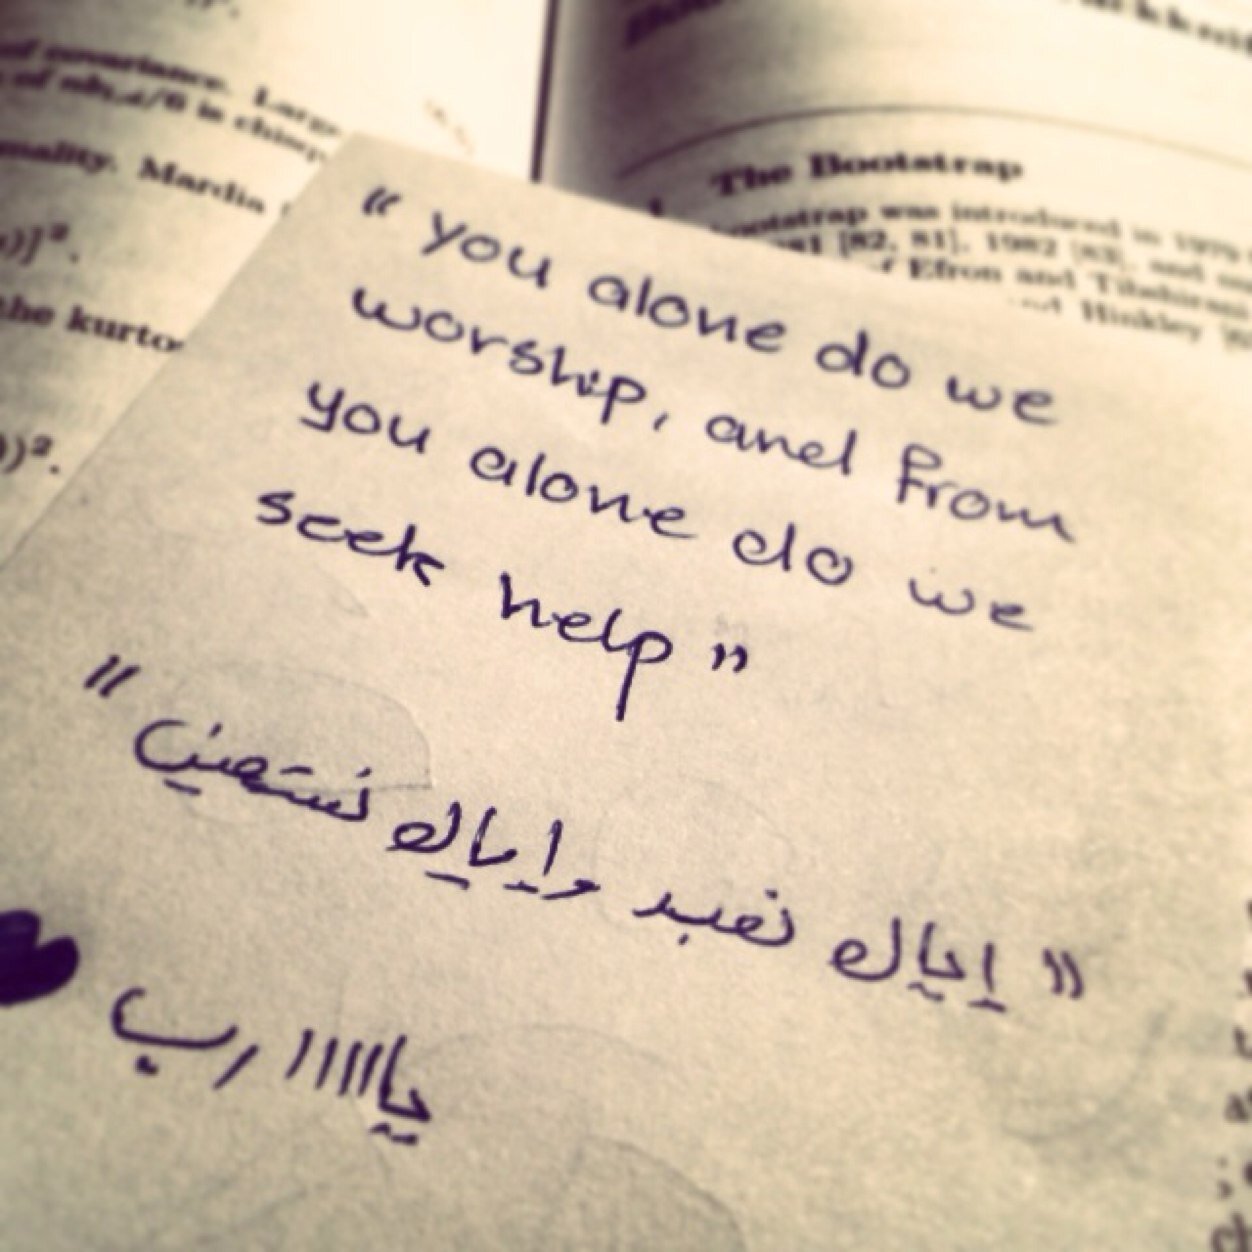 of covariance. Large
of nb₁,d/6 is chisq
mality. Mardia
))]².
the kurto
))².
The Bootstrap
bootstrap was introduced in 1979
[82, 81], 1982 [83], and
f Efron and Tibshirani
Hinkley
" you alone do we
worship, and from
you alone do we
seek help "
" إياك نعبد وإياك نستعين "
يااااا رب